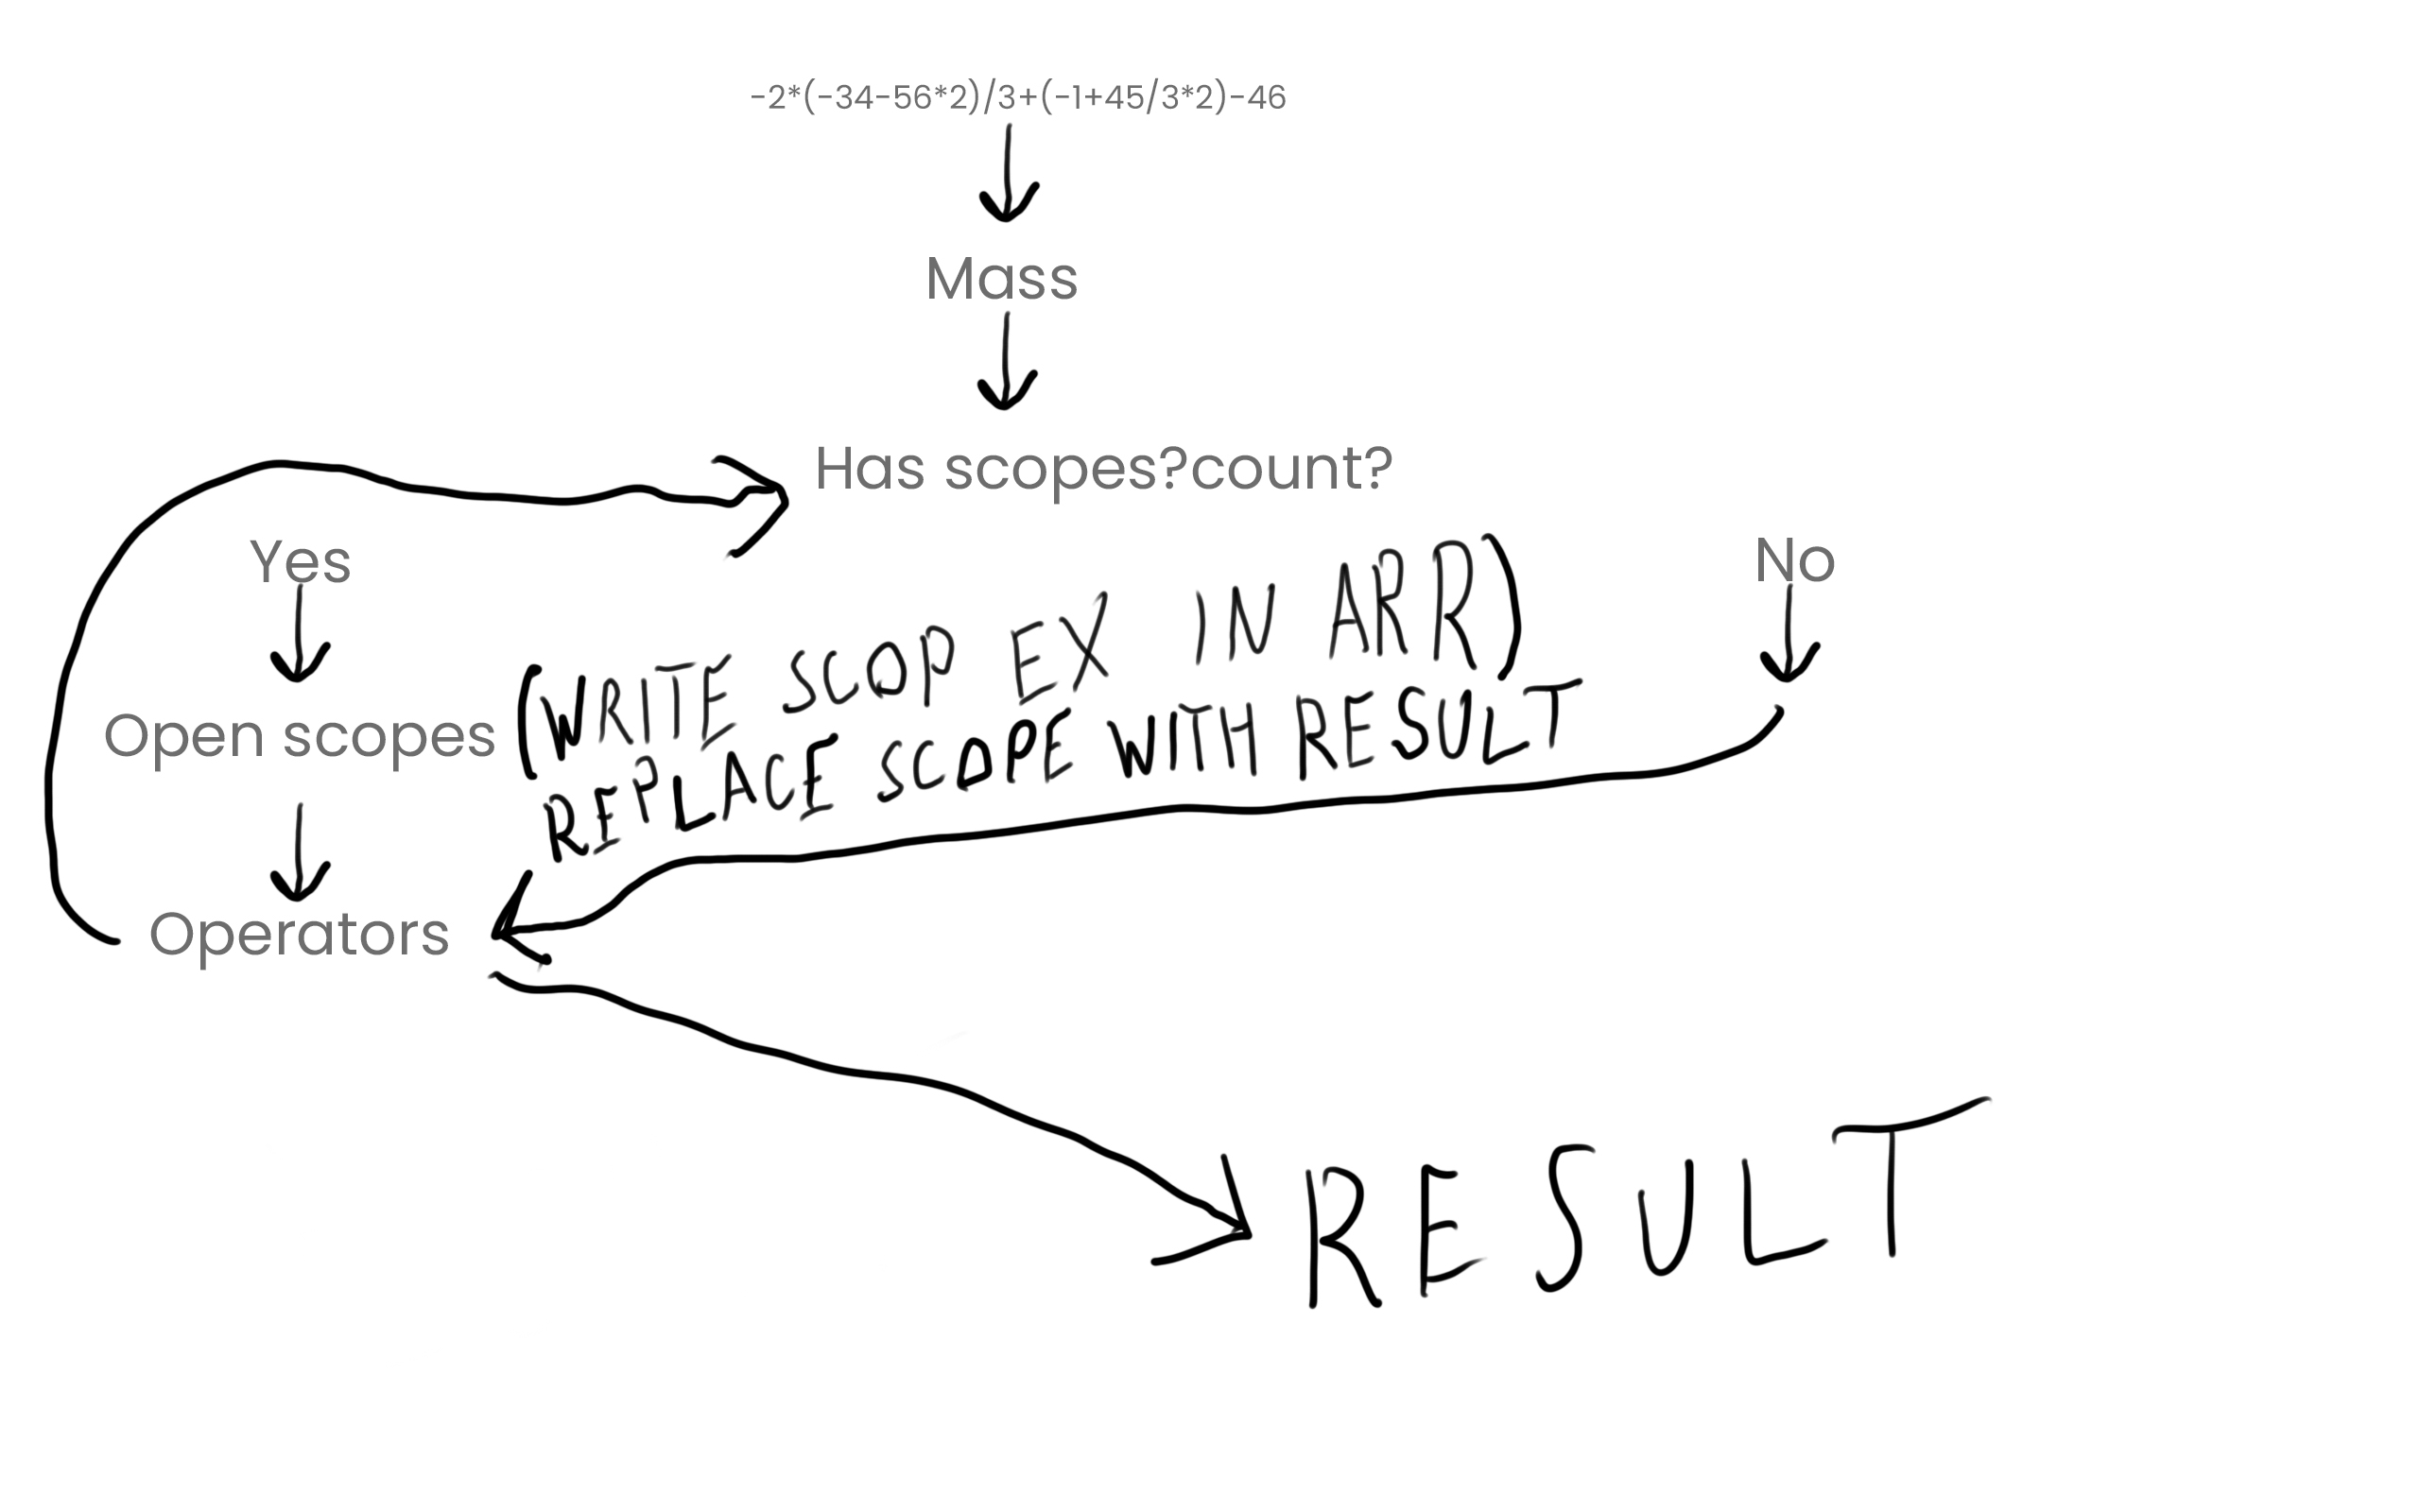 -2*(-34-56*2)/3+(-1+45/3*2)-46
Mass
Has scopes?count?
Yes
No
Open scopes (WRITE SCOP EX IN ARR)
REPLACE SCOPE WITH RESULT
Operators
RESULT